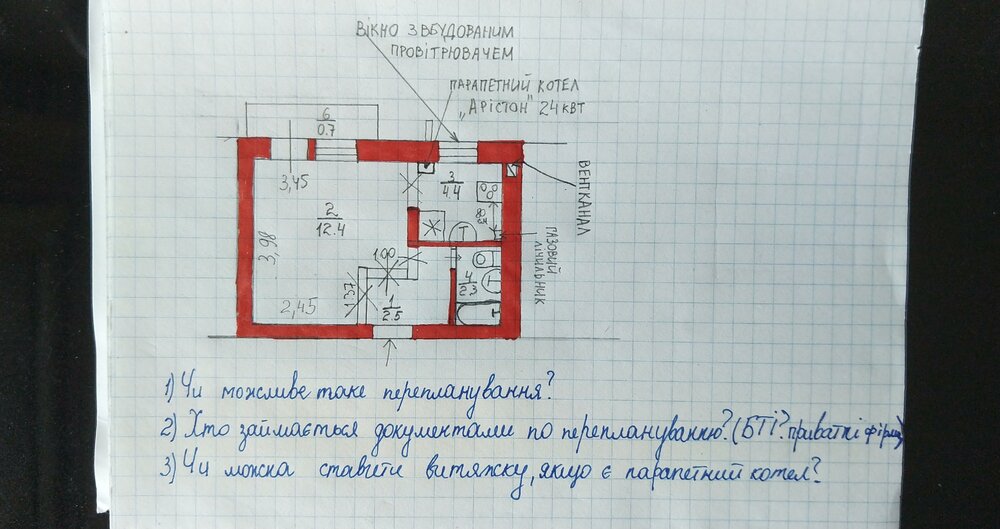 ВІКНО З ВБУДОВАНИМ
ПРОВІТРЮВАЧЕМ
ПАРАПЕТНИЙ КОТЕЛ
„АРІСТОН" 24 КВТ
6
0.7
3,45
3
4.4
ВЕНТКАНАЛ
2
12.4
80 см
3,98
100
ГАЗОВИЙ
ЛІЧИЛЬНИК
4
2.3
1,37
2,45
1
2.5
1) Чи можливе таке перепланування?
2) Хто займається документами по переплануванню? (БТІ? приватні фірми)
3) Чи можна ставити витяжку, якщо є парапетний котел?